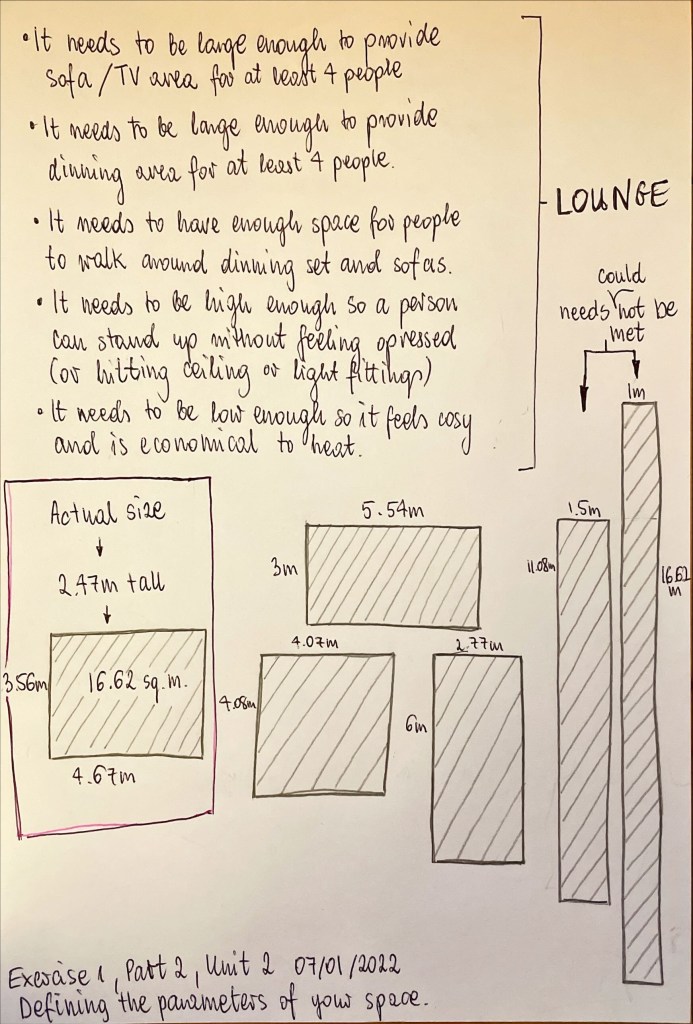 • It needs to be large enough to provide
sofa/TV area for at least 4 people
• It needs to be large enough to provide
dinning area for at least 4 people.
• It needs to have enough space for people
to walk around dinning set and sofas.
• It needs to be high enough so a person
can stand up without feeling opressed
(or hitting ceiling or light fittings)
• It needs to be low enough so it feels cosy
and is economical to heat.
LOUNGE
could
needs not be
met
Actual size
2.47m tall
3.56m
16.62 sq.m.
4.67m
5.54m
3m
4.07m
4.08m
2.77m
6m
1.5m
11.08m
1m
16.62
m
Exercise 1, Part 2, Unit 2 07/01/2022
Defining the parameters of your space.